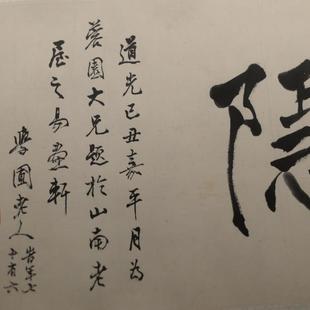 隱
道光己丑嘉平月為
蓉園大兄題於山南老
屋之易畫軒
學圃老人
旹年七
十有六